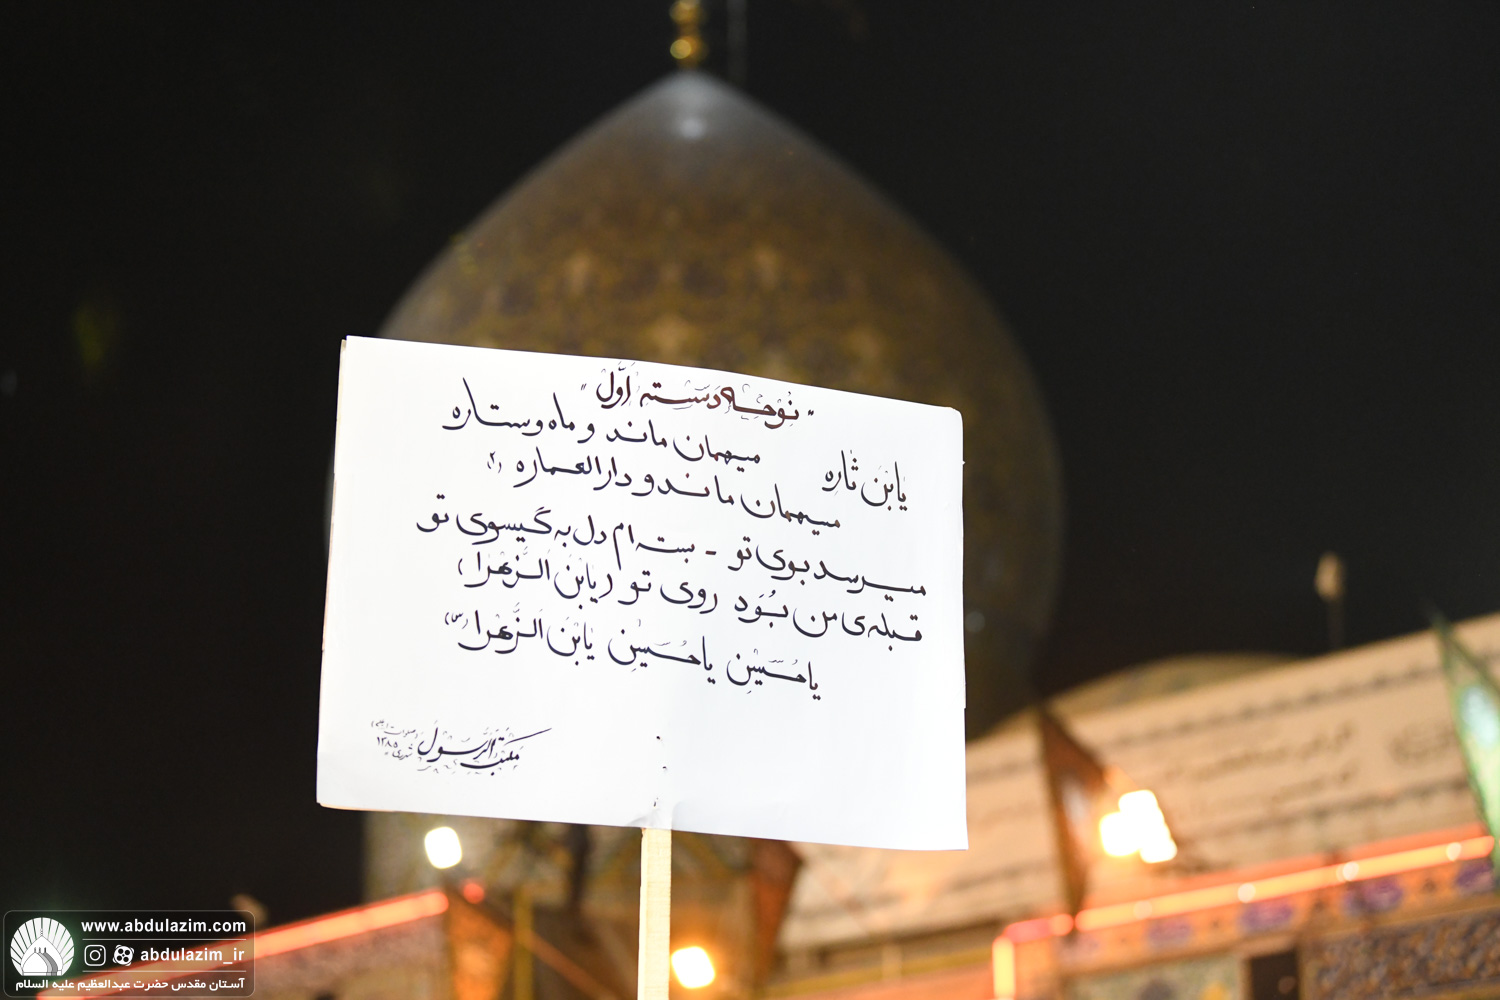 "نوحه دسته اول"
یابن ثاره
میهمان ماند و ماه و ستاره
میهمان ماند و دار العماره (۲)
میرسد بوی تو - بسته ام دل به گیسوی تو
قبله ی من بُوَد روی تو (یابن الزهرا)
یا حسین یا حسین یابن الزهرا (۳)
مکتب الرسول
شهرری ۱۳۸۵
www.abdulazim.com
abdulazim_ir
آستان مقدس حضرت عبدالعظیم علیه السلام